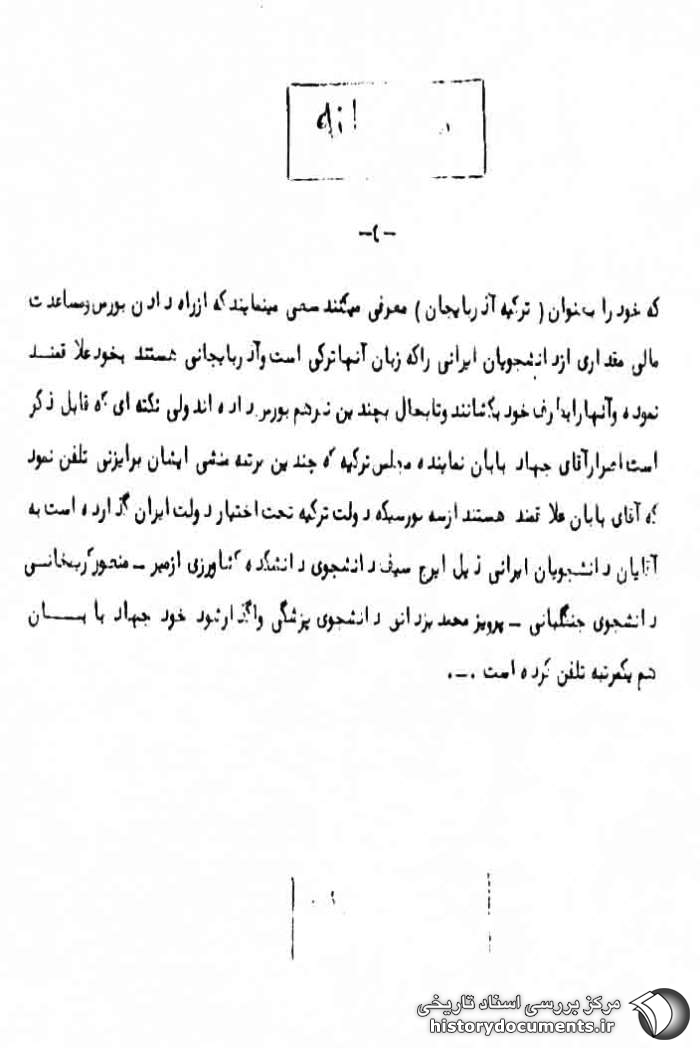 -۲-
که خود را بعنوان ( ترکیه آذربایجان ) معرفی میکنند سعی مینمایند که ازراه دادن بورس ومساعدت
مالی مقداری ازدانشجویان ایرانی راکه زبان آنهاترکی است وآذربایجانی هستند بخودعلاقمند
نموده وآنهارابطرف خود بکشانند وتابحال بچندین نفرهم بورس داده اند ولی نکته ای که قابل ذکر
است اصرارآقای جهاد بابان نماینده مجلس ترکیه که چندین مرتبه منشی ایشان برایزنی تلفن نمود
که آقای بابان علاقمند هستند ازسه بورسیکه دولت ترکیه تحت اختیار دولت ایران گذارده است به
آقایان دانشجویان ایرانی ذیل ایرج سیف دانشجوی دانشکده کشاورزی ازمیر - منصورکریمخانی
دانشجوی جنگلبانی - پرویز محمد یزدانی دانشجوی پزشگی واگذارشود خود جهاد بابان
هم یکمرتبه تلفن کرده است .-.
مرکز بررسی اسناد تاریخی
historydocuments.ir